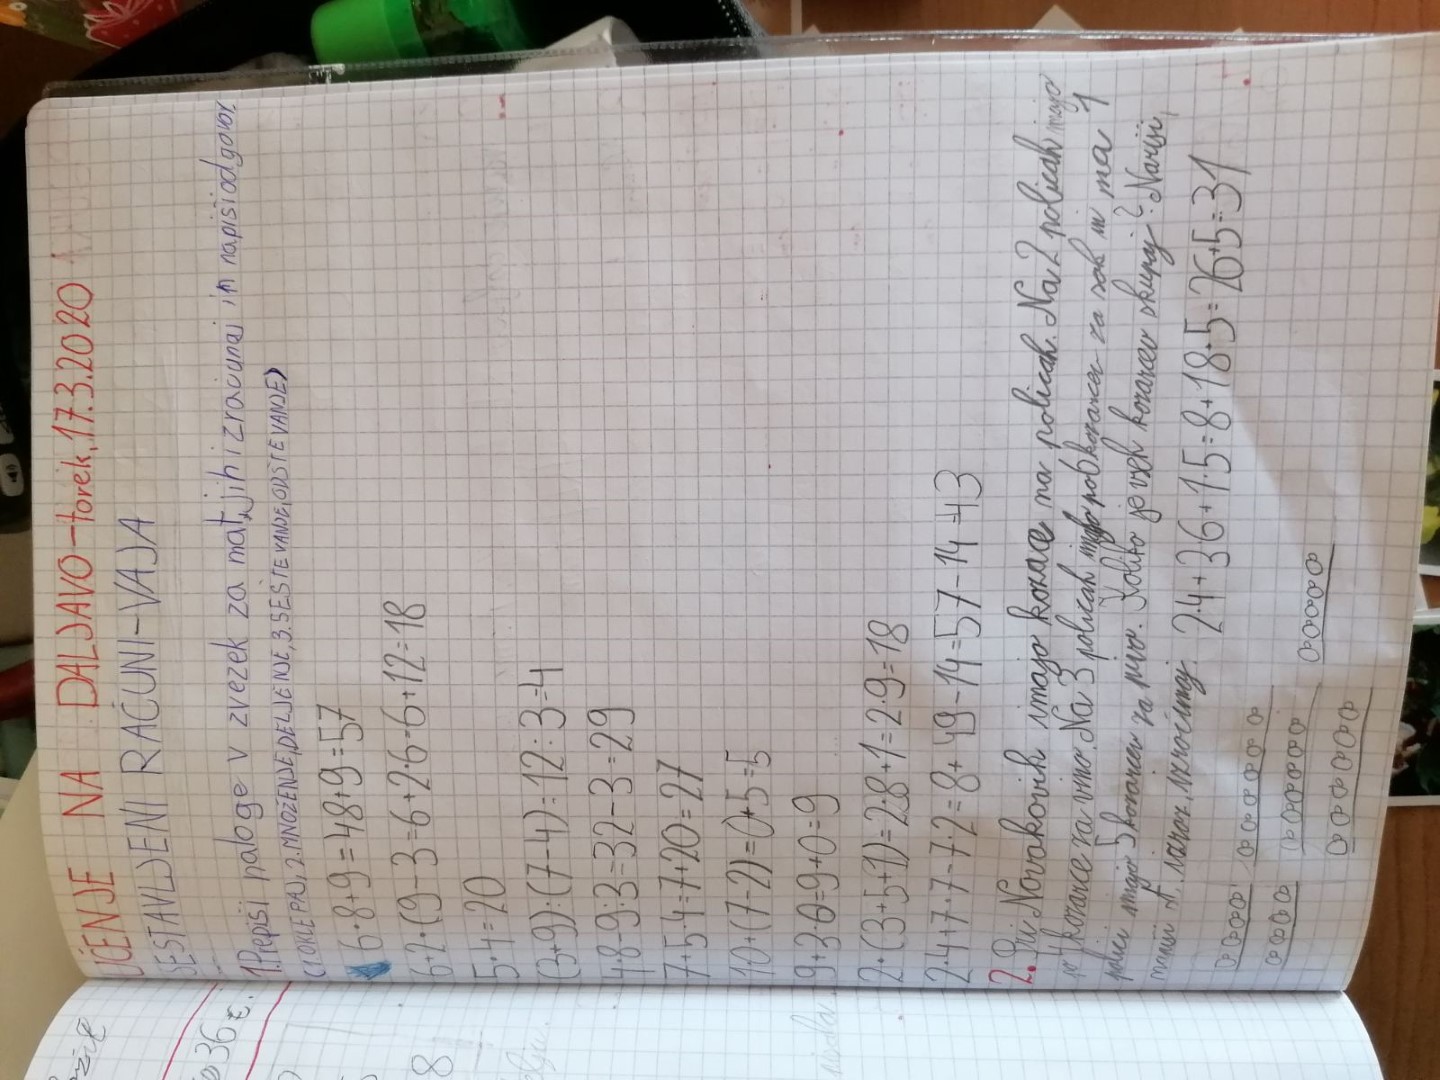 UČENJE NA DALJAVO-torek, 17.3.2020
SESTAVLJENI RAČUNI-VAJA
1. Prepiši naloge v zvezek za mat, jih izračunaj in napiši odgovor.
(1. OKLEPAJ, 2. MNOŽENJE, DELJENJE, 3. SEŠTEVANJE, ODŠTEVANJE)
6·8+9=48+9=57
6+2·(9-3=6+2·6=6+12=18
5·4=20
(3+9):(7-4)=12:3=4
4·8-9:3=32-3=29
7+5·4=7+20=27
10+(7-2)=0+5=5
9+3·0=9+0=9
2·(3+5+1)=2·8+1=2·9=18
2·4+7·7-7·2=8+49-14=57-14=43
2. Pri Novakovih imajo kozarce na policah. Na 2 policah imajo
po 4 kozarce za vino. Na 3 policah imajo po 6 kozarcev za sok in na 1
polici imajo 5 kozarcev za pivo. Koliko je vseh kozarcev skupaj? Nariši,
napiši račun, izračunaj. 2·4+3·6+1·5=8+18+5=26+5=31
36 €.
8